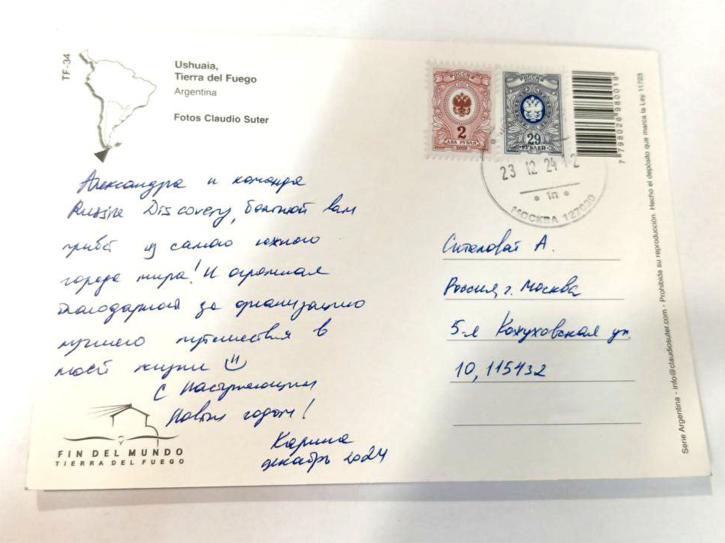 TF-34
Ushuaia,
Tierra del Fuego
Argentina
Fotos Claudio Suter
РОССИЯ
2
ДВА РУБЛЯ
РОССИЯ
29
РУБЛЕЙ
23 12 24 12
* 1п *
МОСКВА 127020
7798026980019
Hecho el depósito que marca la Ley 11723
Serie Argentina - info@claudiosuter.com - Prohibida su reproducción.
Александра и команда
Russia Discovery, большой вам
привет из самого южного
города мира! И огромная
благодарность за организацию
лучшего путешествия в
моей жизни
С Наступающим
Новым годом!
Карина
декабрь 2024
А.
Россия, г. Москва
5-я Кожуховская ул.
10, 115432
FIN DEL MUNDO
TIERRA DEL FUEGO